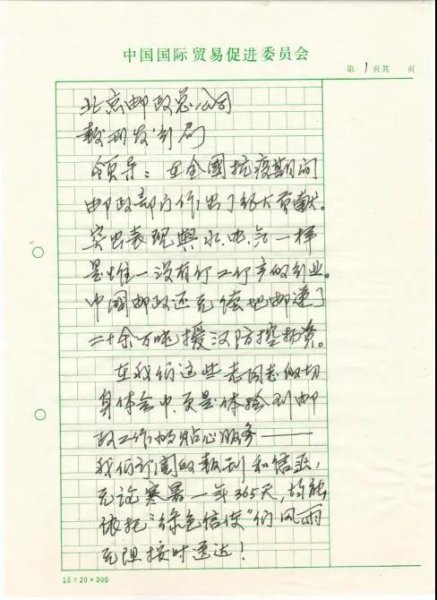 中国国际贸易促进委员会
第1页共 页
北京邮政总公司
報刊发行局
领导：在全國抗疫期间
邮政部门作出了很大贡献。
突出表现與水、电、气一样
是惟一没有停工停产的行业。
中國邮政还无偿地邮递了
二十余万吨援汉防控物资。
在我们这些老同志的切
身体会中，更是体验到邮
政工作的贴心服务——
我们订阅的報刊和信函，
无论寒暑一年365天，均能
依托"绿色信使"们风雨
无阻按时送达！
15×20=300